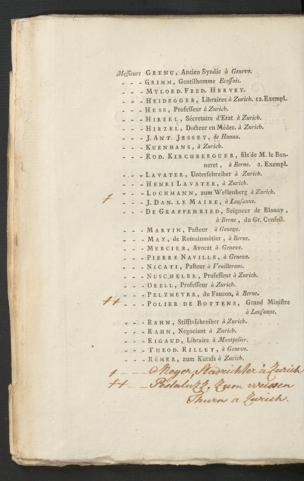 Messieurs GRENU, Ancien Syndic à Geneve.
- - - GRIMM, Gentilhomme Ecossois.
- - - MYLORD. FRED. HERVEY.
- - - HEIDEGGER, Libraires à Zurich. 12. Exempl.
- - - HESS, Professeur à Zurich.
- - - HIRZEL, Sécretaire d'Etat à Zurich.
- - - HIRZEL, Docteur en Médec. à Zurich.
- - - J. ANT. JESSEY, de Hanau.
- - - KUENHANS, à Zurich.
- - - ROD. KIRCHBERGUER, fils de M. le Ban-
neret, à Berne. 2. Exempl.
- - - LAVATER, Unterschreiber à Zurich.
- - - HENRI LAVATER, à Zurich.
- - - LOCHMANN, zum Wellenberg à Zurich.
+ - - - J. DAN. LE MAIRE, à Lausanne.
- - - DE GRAFFENRIED, Seigneur de Blonay,
à Berne, du Gr. Conseil.
- - - MARTIN, Pasteur à Geneve.
- - - MAY, de Romainmôtier, à Berne.
- - - MERCIER, Avocat à Geneve.
- - - PIERRE NAVILLE, à Geneve.
- - - NICATI, Pasteur à
- - - NUSCHELER, Professeur à Zurich.
- - - ORELL, Professeur à Zurich.
- - - PELZMEYER, du Faucon, à Berne.
++ - - - POLIER DE BOTTENS, Grand Ministre
à Lausanne.
- - - RAHN, Stifftschreiber à Zurich.
- - - RAHN, Negociant à Zurich.
- - - RIGAUD, Libraire à Montpelier.
- - - THEOD. RILLET, à Geneve.
- - - RÖMER, zum Küraß à Zurich.
+ - - - Meyer, Stadrichter à Zurich
++ - - Pestaluzz, Zum weissen
Thurn à Zurich.